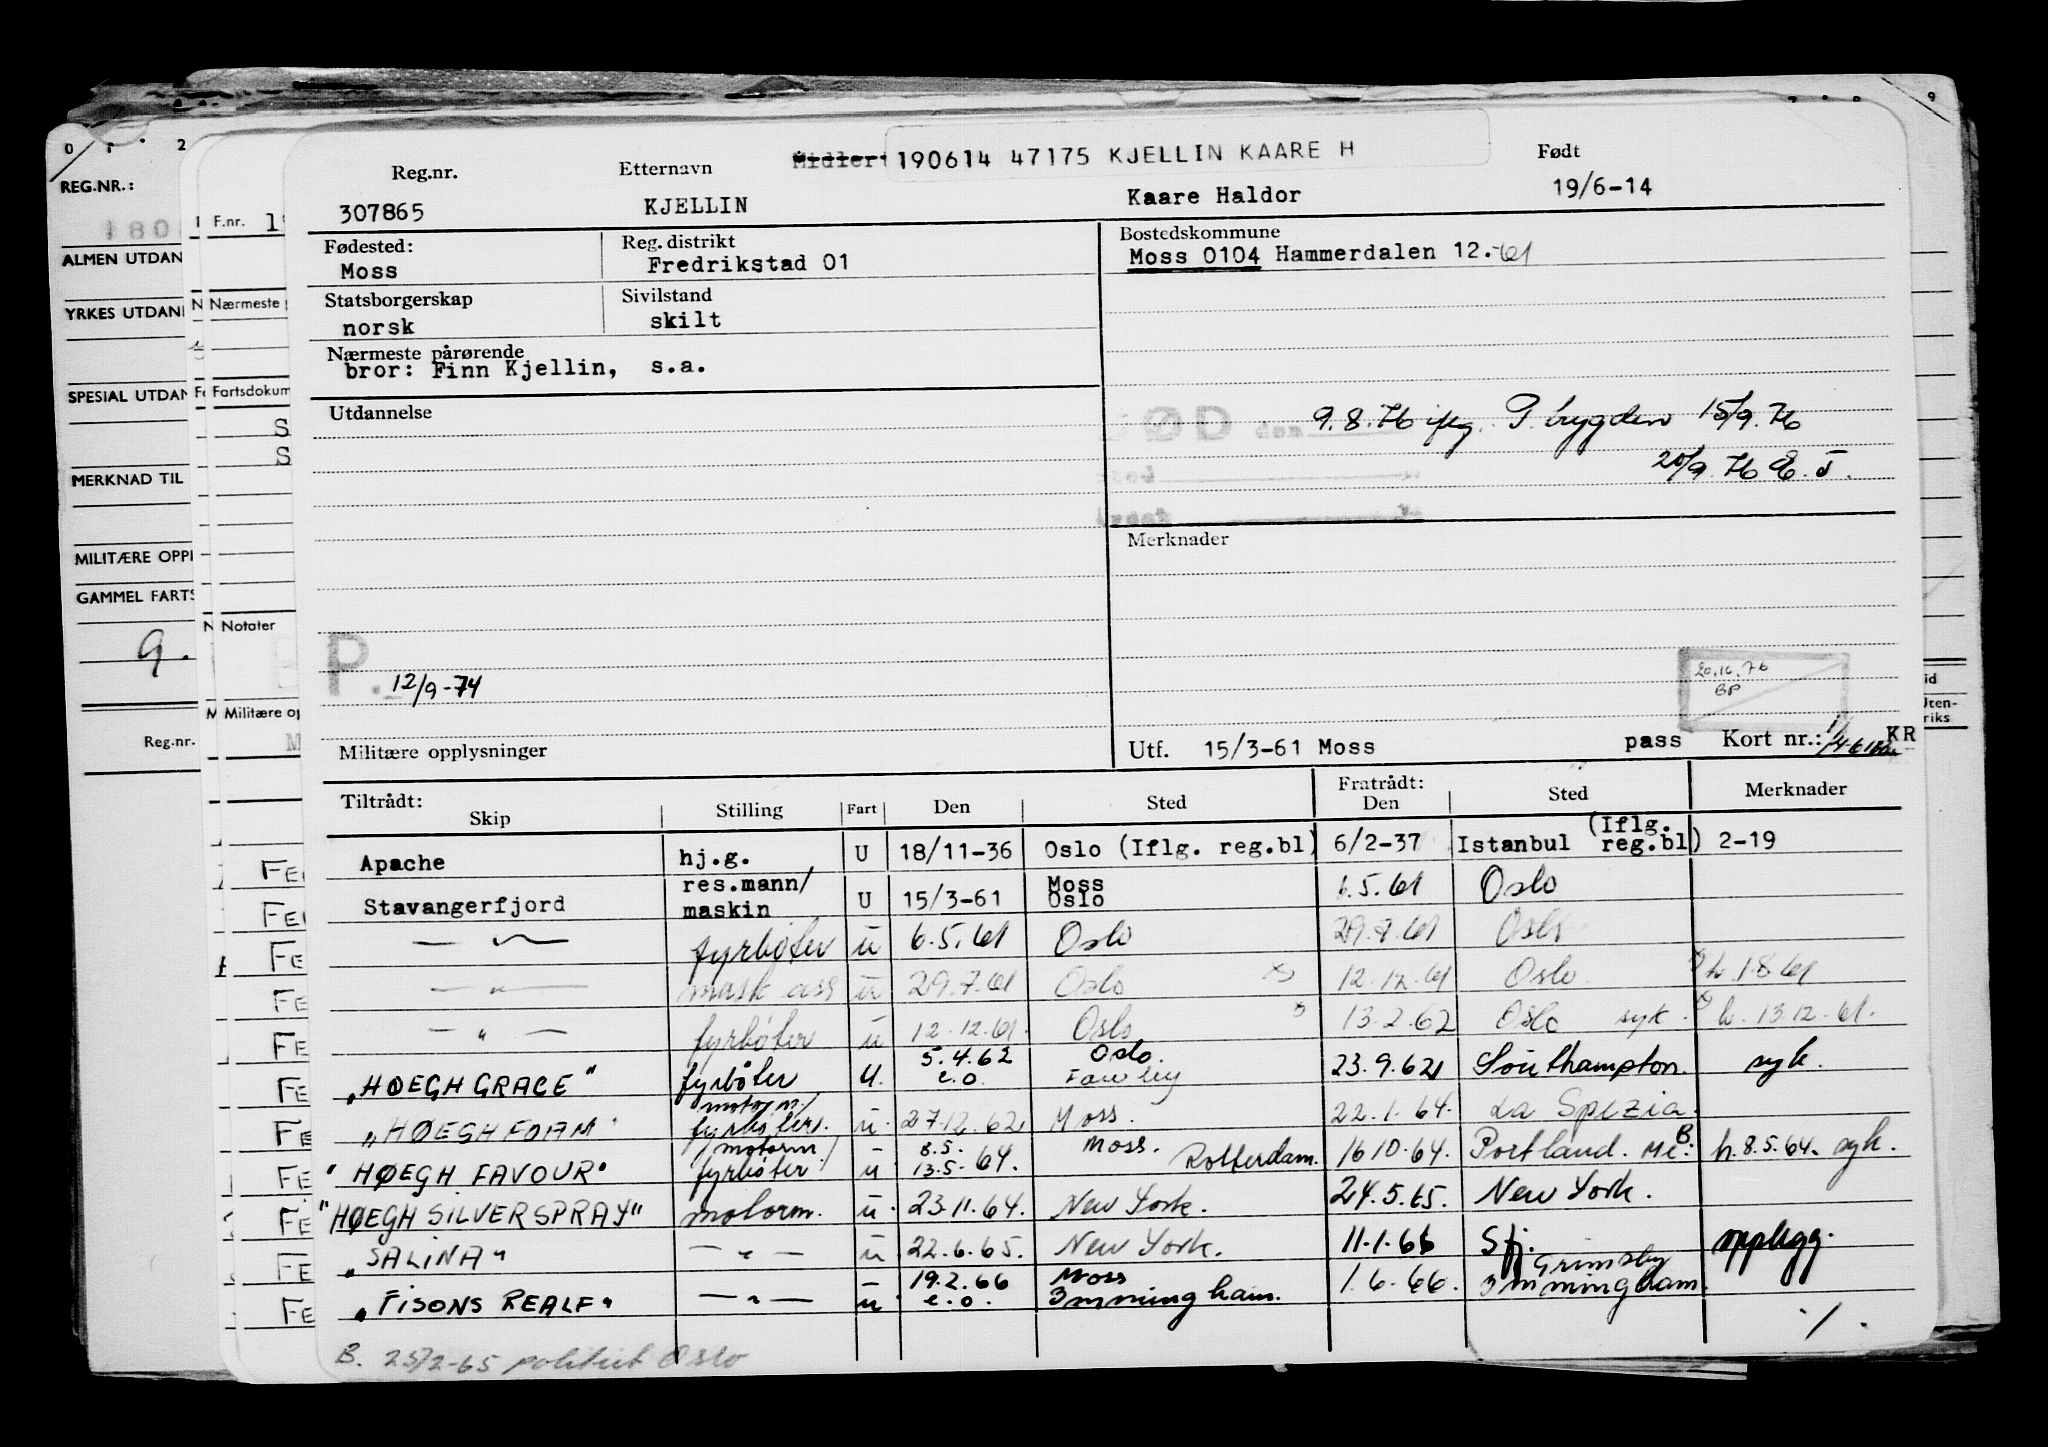 Midler: 190614 47175 KJELLIN KAARE H
Reg.nr. Etternavn Født
307865 KJELLIN Kaare Haldor 19/6-14
Fødested: Reg. distrikt Bostedskommune
Moss Fredrikstad 01 Moss 0104 Hammerdalen 12.-61
Statsborgerskap Sivilstand
norsk skilt
Nærmeste pårørende
bror: Finn Kjellin, s.a.
Utdannelse
DØD den
9.8.76 iflg. P. trygden 15/9.76
20/9.76
Merknader
P. 12/9-74
20.10.76
BP
Militære opplysninger Utf. 15/3-61 Moss pass Kort nr.: KR
Tiltrådt: Fratrådt:
Skip Stilling Fart Den Sted Den Sted Merknader
Apache hj.g. U 18/11-36 Oslo (Iflg. reg.bl) 6/2-37 Istanbul (Iflg. reg.bl) 2-19
Stavangerfjord res.mann/ maskin U 15/3-61 Moss Oslo 6.5.61 Oslo
— " — fyrbøter u 6.5.61 Oslo 29.7.61 Oslo
— " — mask ass u 29.7.61 Oslo x) 12.12.61 Oslo x) h. 1.8.61
— " — fyrbøter u 12.12.61. Oslo 13.2.62 Oslo syk. h. 13.12.61.
"HØEGH GRACE" fyrbøter u. 5.4.62 e.o. Oslo. Fawley 23.9.62 Southampton. syk.
"HØEGH FOAM" motorm/ fyrbøter. u. 27.12.62 Moss. 22.1.64. La Spezia.
"HØEGH FAVOUR" motorm./ fyrbøter u 8.5. 13.5.64. Moss. Rotterdam. 16.10.64. Portland. Me. B. h. 8.5.64. syk.
"HØEGH SILVERSPRAY" motorm. u. 23.11.64. New York. 24.5.65. New York.
"SALINA" — " — u 22.6.65. New York. 11.1.66 Sfj. opplegg.
"FISONS REALF" — " — u 19.2.66 e.o. Moss Immingham. 1.6.66. Grimsby Immingham.
B. 23/2-65 politiet Oslo
./.
REG.NR.:
ALMEN UTDAN
YRKES UTDAN
SPESIAL UTDAN
MERKNAD TIL
MILITÆRE OPPL
GAMMEL FARTS
9.
Reg.nr.
F.nr.
Nærmeste
Fartsdokum
S
S
Notater
Militære op
FE
FE
FE
FE
FE
FE
FE
FE
FE
FE
FE
id
Uten-
riks